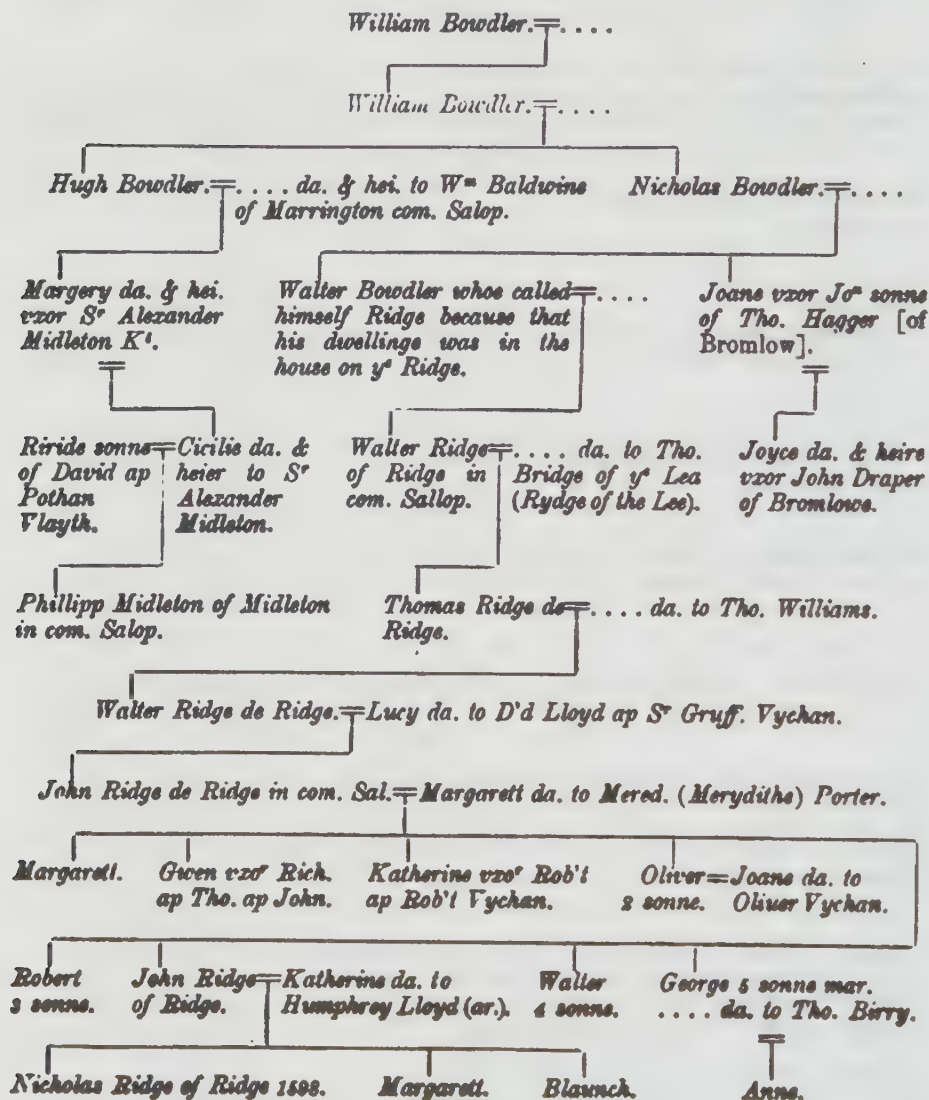 William Bowdler.=. . . .
William Bowdler.=. . . .
Hugh Bowdler.=. . . . da. & hei. to Wᵐ Baldwine
of Marrington com. Salop.
Nicholas Bowdler.=. . . .
Margery da. & hei.
vxor Sʳ Alexander
Midleton Kᵗ.
Walter Bowdler whoe called=. . . .
himself Ridge because that
his dwellinge was in the
house on yᵉ Ridge.
Joane vxor Joⁿ sonne
of Tho. Hagger [of
Bromlow].
Riride sonne=
of David ap
Pothan
Vlayth.
Cicilie da. &
heier to Sʳ
Alexander
Midleton.
Walter Ridge=
of Ridge in
com. Sallop.
. . . . da. to Tho.
Bridge of yᵉ Lea
(Rydge of the Lee).
Joyce da. & heire
vxor John Draper
of Bromlowe.
Phillipp Midleton of Midleton
in com. Salop.
Thomas Ridge de=. . . . da. to Tho. Williams.
Ridge.
Walter Ridge de Ridge.=Lucy da. to D'd Lloyd ap Sʳ Gruff. Vychan.
John Ridge de Ridge in com. Sal.=Margarett da. to Mered. (Merydithe) Porter.
Margarett.
Gwen vxoʳ Rich.
ap Tho. ap John.
Katherine vxoʳ Rob't
ap Rob't Vychan.
Oliver=
2 sonne.
Joane da. to
Oliuer Vychan.
Robert
3 sonne.
John Ridge=
of Ridge.
Katherine da. to
Humphrey Lloyd (ar.).
Walter
4 sonne.
George 5 sonne mar.
. . . . da. to Tho. Birry.
Nicholas Ridge of Ridge 1598.
Margarett.
Blaunch.
Anne.